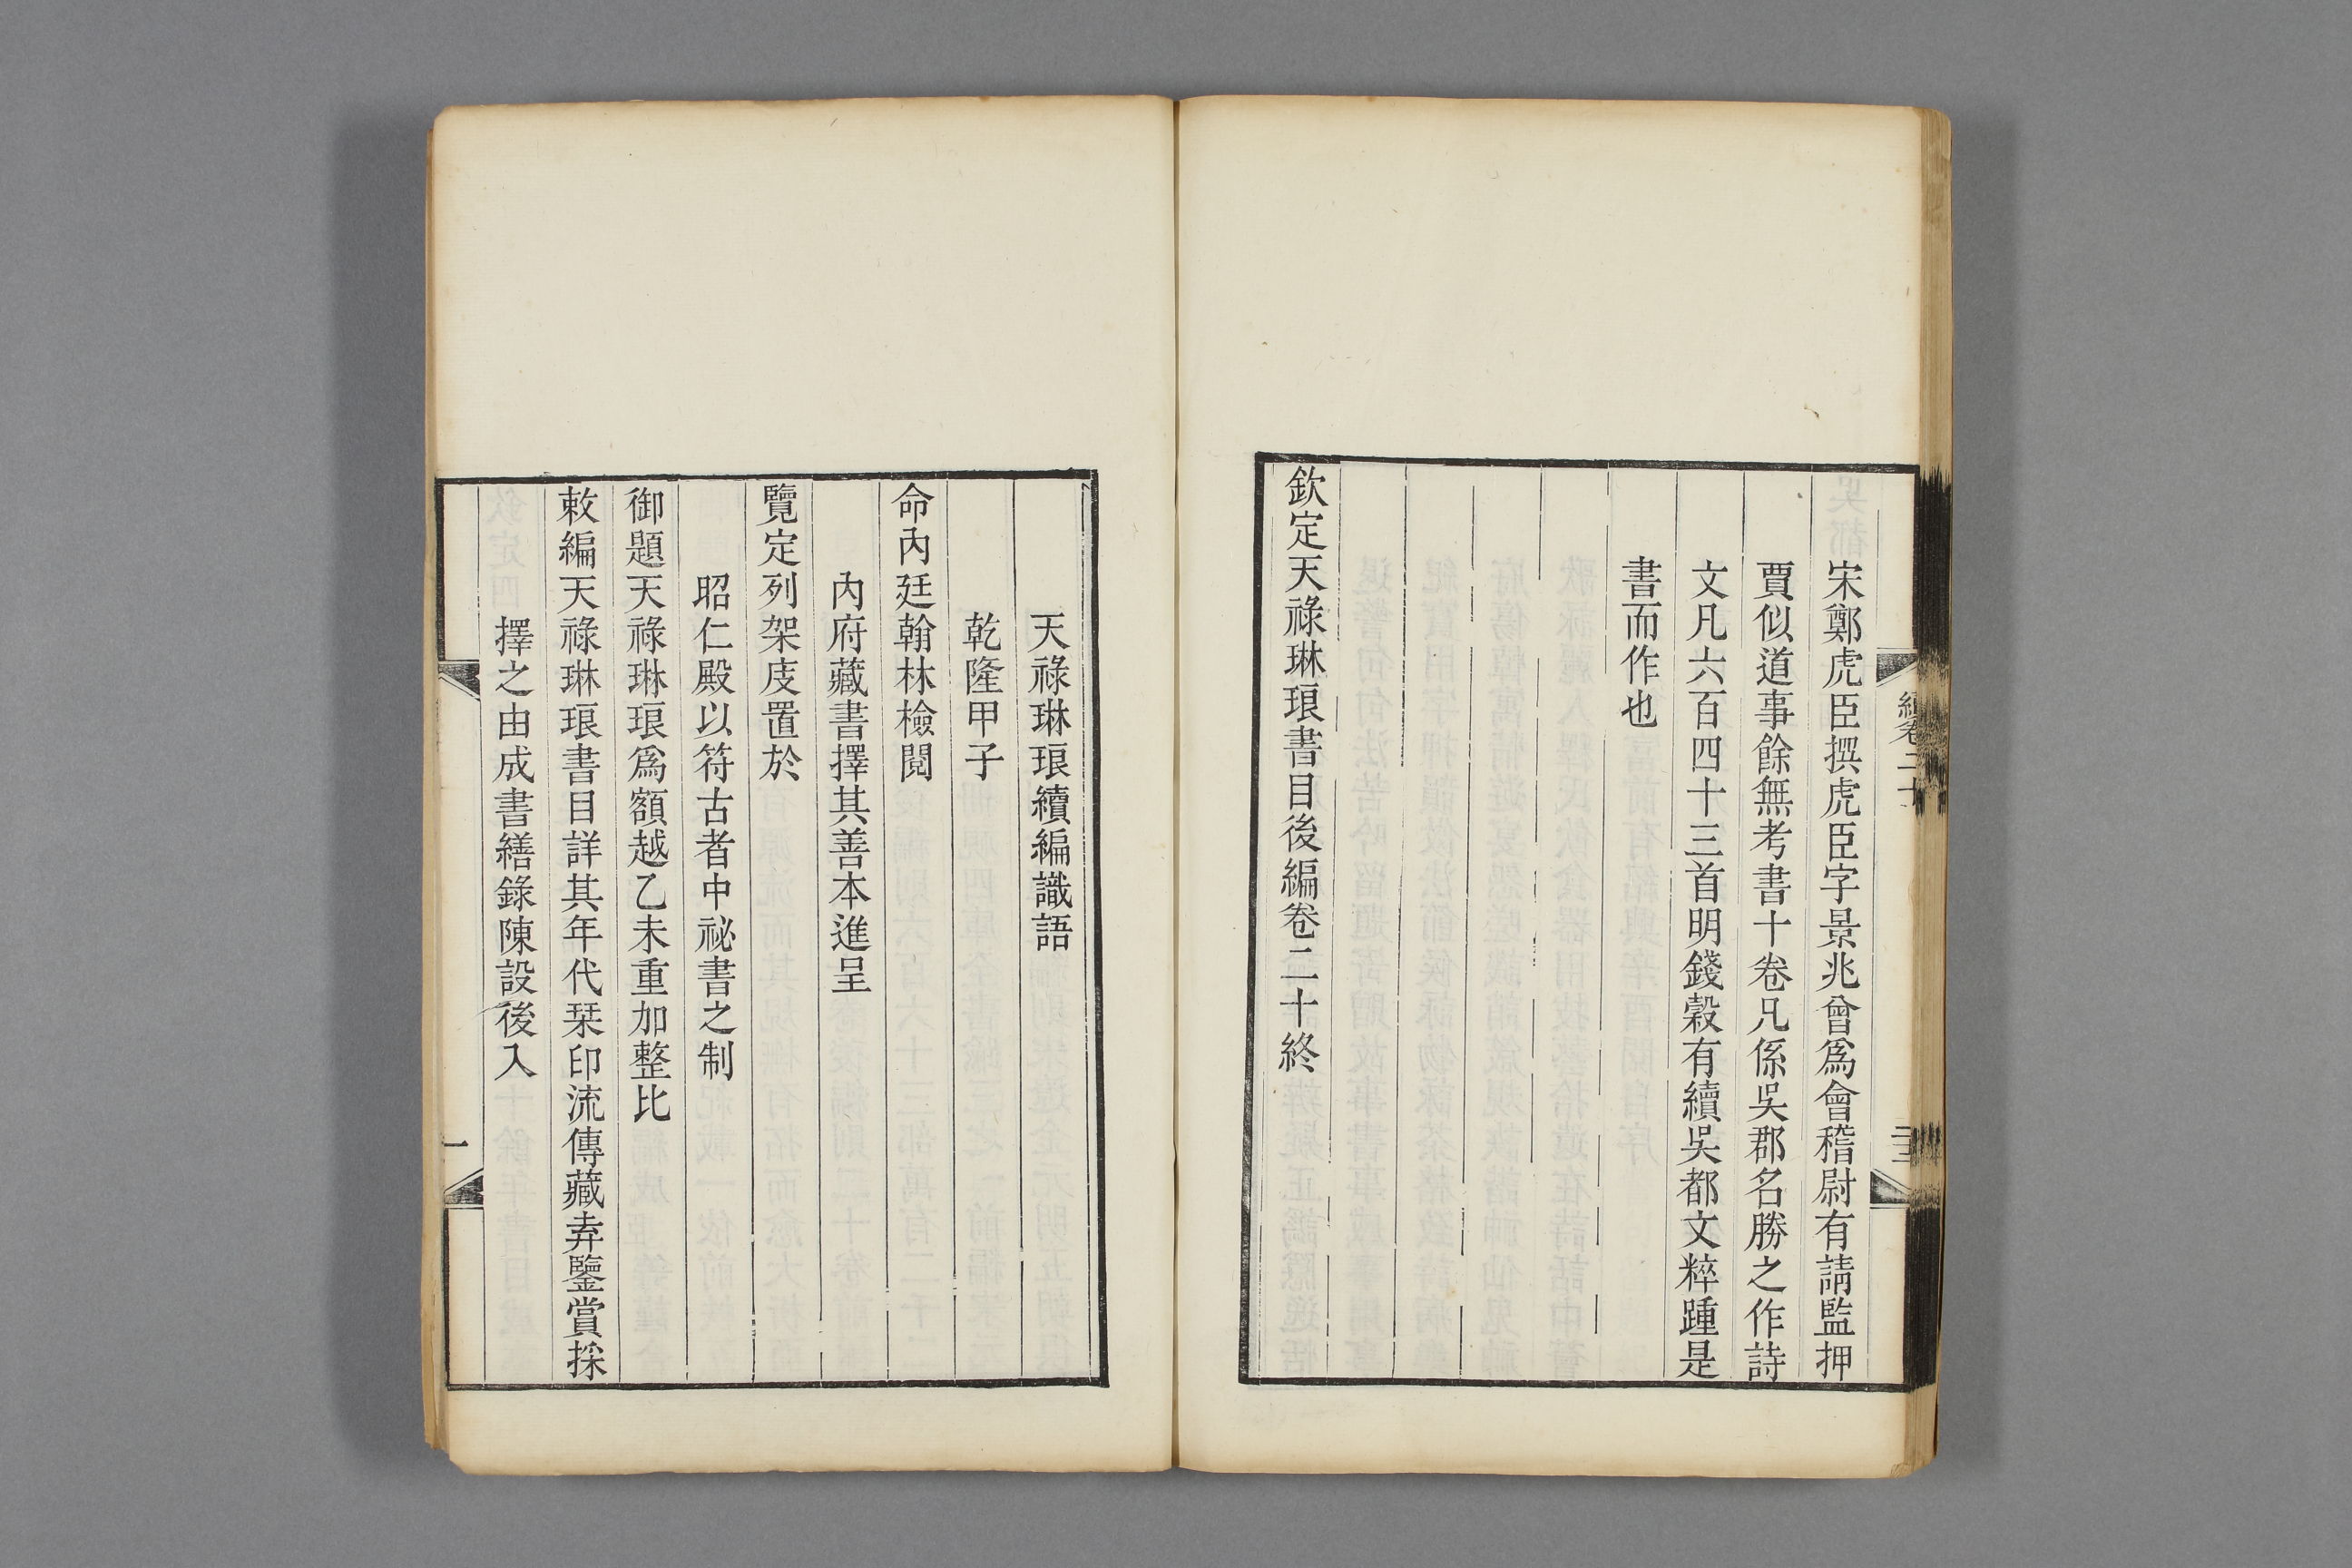 宋鄭虎臣撰虎臣字景兆曾爲會稽尉有請監押
賈似道事餘無考書十卷凡係吳郡名勝之作詩
文凡六百四十三首明錢穀有續吳都文粹踵是
書而作也
欽定天祿琳琅書目後編卷二十終
天祿琳琅續編識語
乾隆甲子
命內廷翰林檢閱
內府藏書擇其善本進呈
覽定列架庋置於
昭仁殿以符古者中祕書之制
御題天祿琳琅爲額越乙未重加整比
敕編天祿琳琅書目詳其年代栞印流傳藏弆鑒賞採
擇之由成書繕錄陳設後入
一